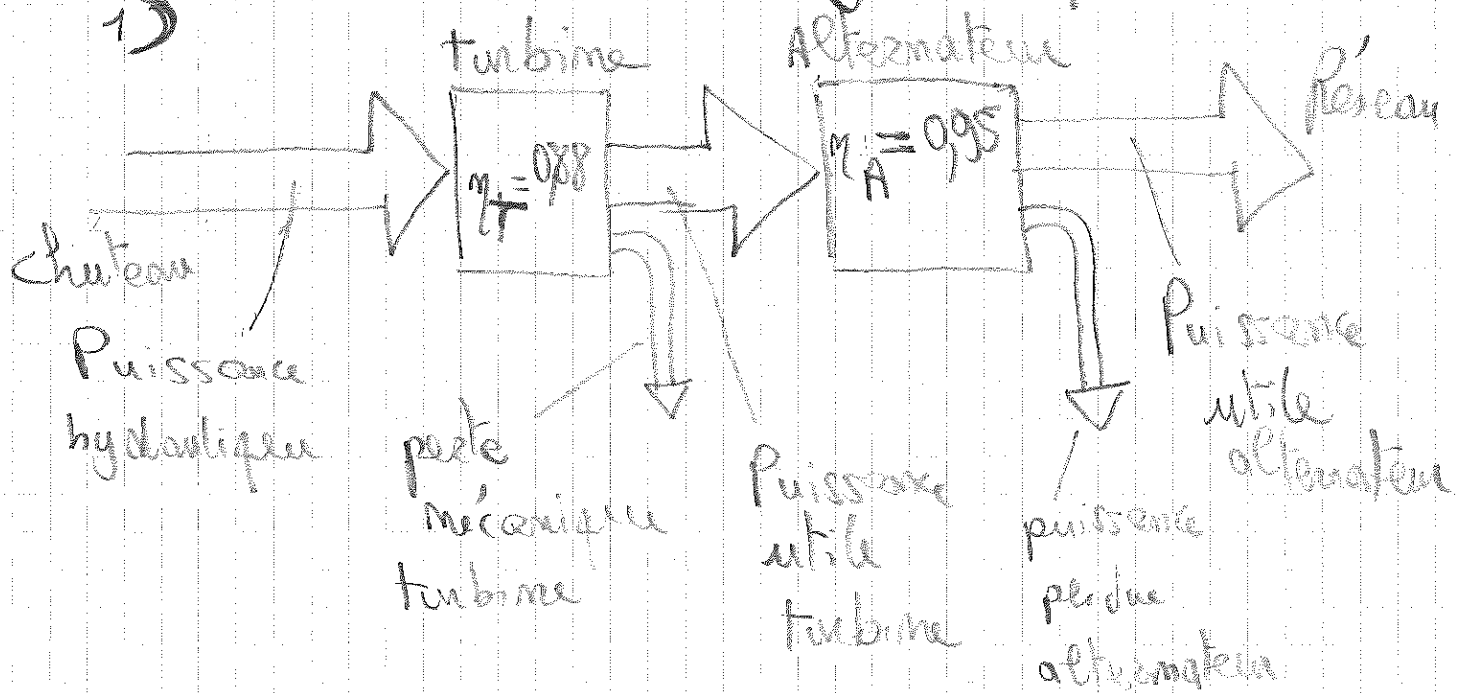 1)
turbine
Alternateur
Réseau
η_T = 0,88
η_A = 0,95
Chute eau
Puissance
hydraulique
perte
mécanique
turbine
Puissance
utile
turbine
puissance
perdue
alternateur
Puissance
utile
alternateur